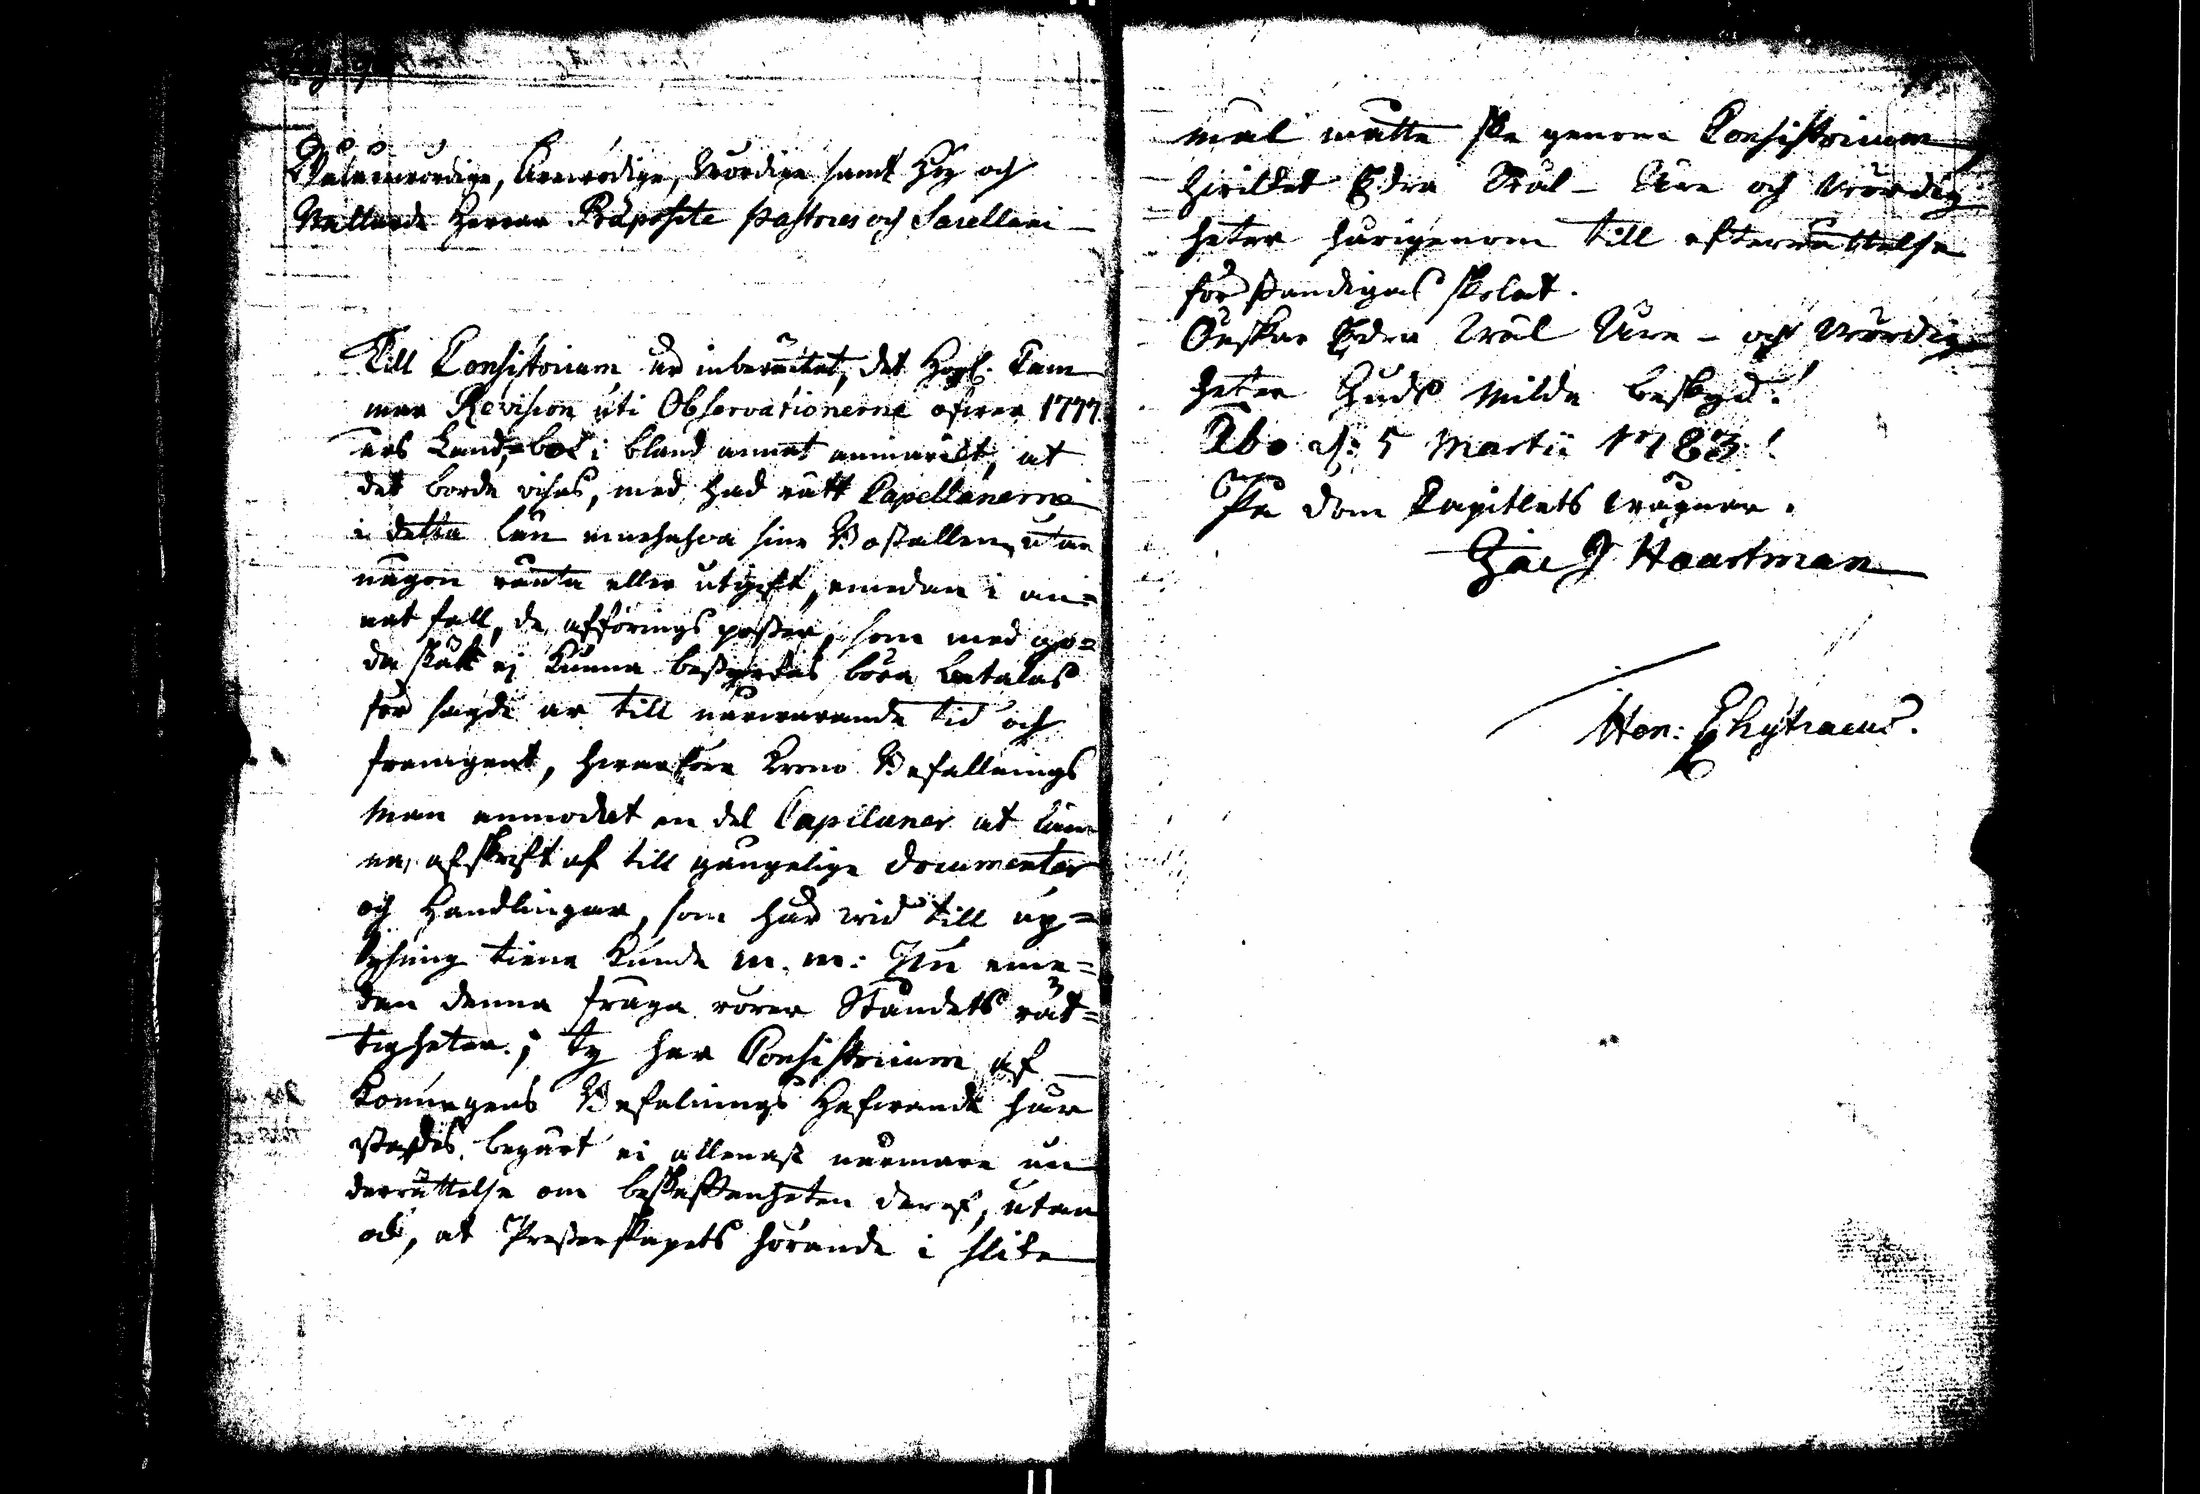 Wälärewördige, Ärewördige, Wördige samt Höy och
Wällärde Herrar Præposite Pastores och Sacellani
Till Consistorium är inberättat, det Högl. Cam
mar Revision uti Observationerne öfwer 1777
års Landsbok i bland annat anmärkt, at
det borde wisas, med hwad rätt Capellanerne
i detta Län innehafwa sine Boställen, utan
någon ränta eller utgift, emedan i an=
nat fall, de afförings poster, som med go=
da skäl ej kunna bestyrkas böra betalas
för sagde år till närwarande tid och
framgent, hwarföre Crono Befallnings
Man anmodat en del Capellaner at läm
na, afskrift af till gängelige documenter
och Handlingar, som här wid till up=
lysning tiena kunde m. m: Nu eme=
dan denna fråga rörer Ståndets rät=
tigheter; ty har Consistorium af
Konungens Befalnings Hafwande här
städes begärt ei allenast närmare un
derrättelse om beskaffenheten deraf, utan
ock, at Presterskapets hörande i slike
mål måtte ske genom Consistorium
hwilket Edra Wäl- Äre och Wördig
heter härigenom till efterrättelse
förständigas skolat.
Önskar Edra Wäl Äre - och Wördig
heter Guds Milda beskyd!
Åbo d: 5 Martii 1783!
På Dom Capitlets wägnar.
Jac J Haartman
Hen: Chytraeus.